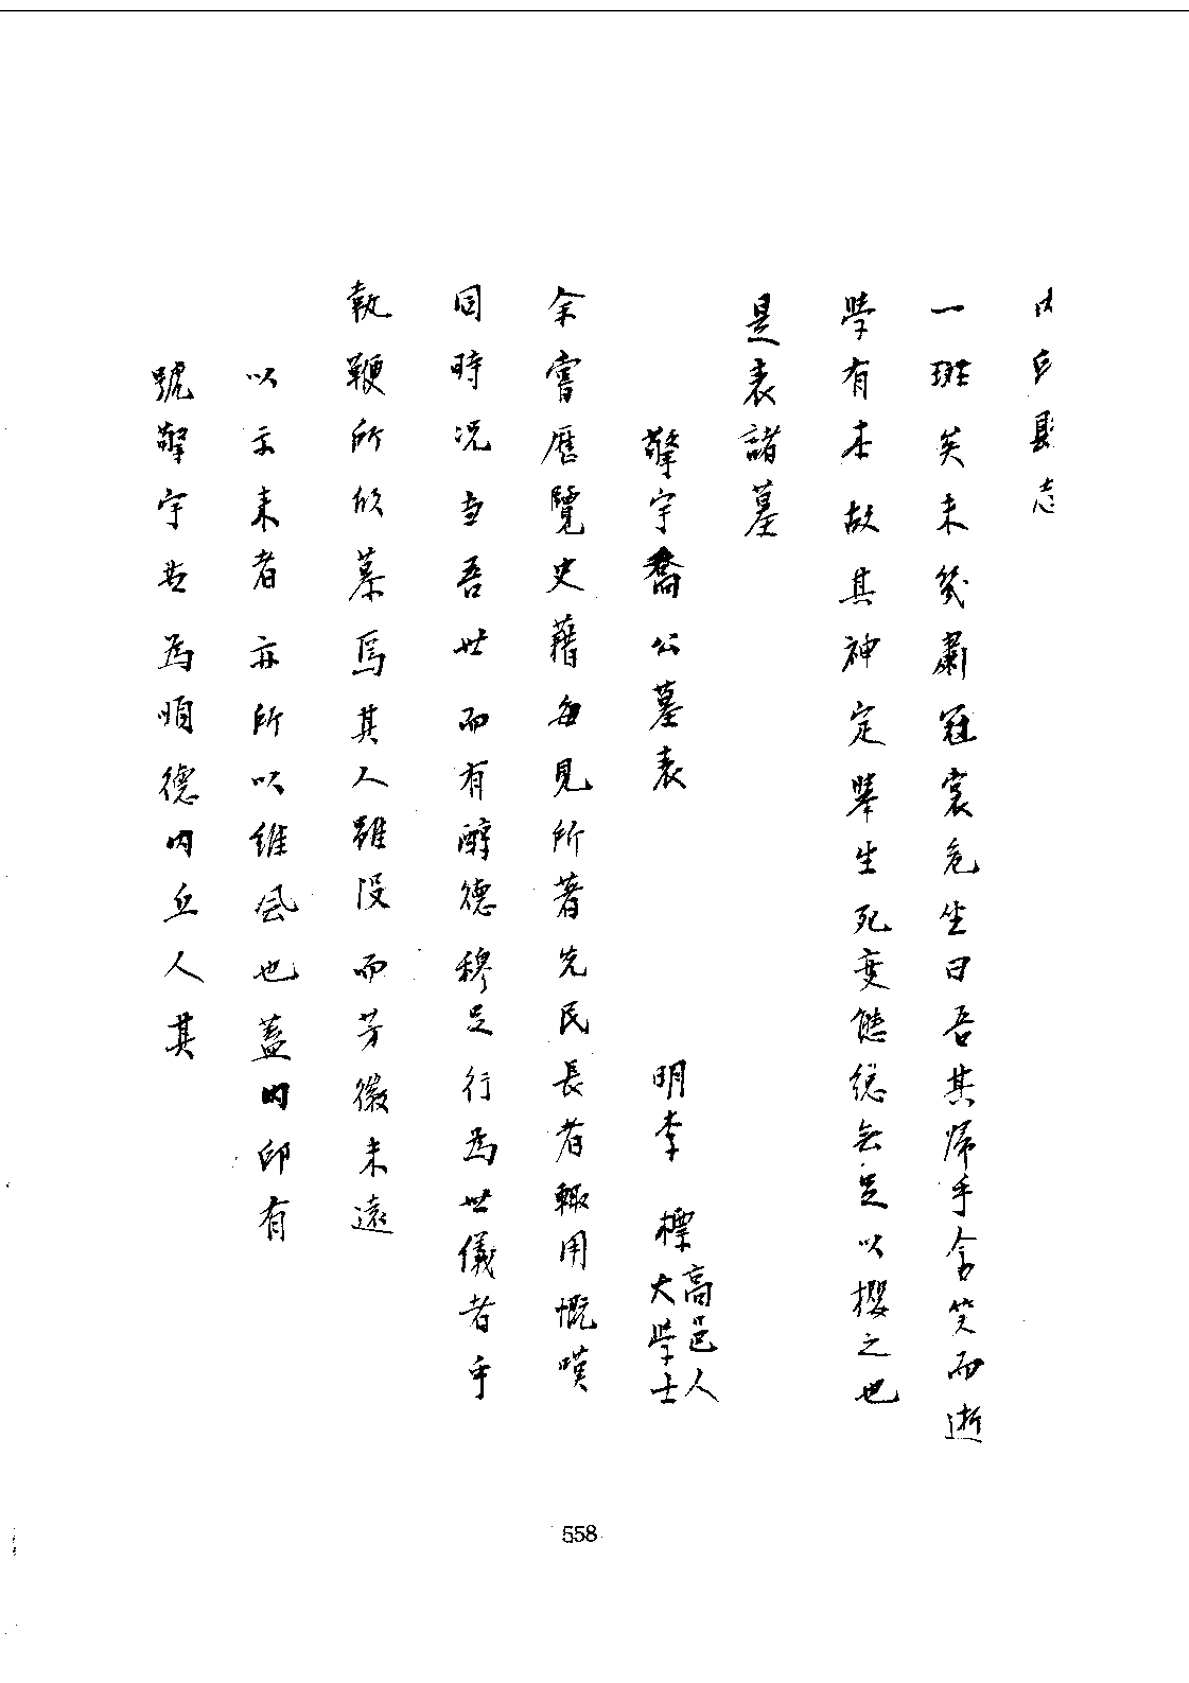 内邱縣志
一班矣未幾肅冠裳危坐曰吾其歸乎含笑而逝
學有本故其神定舉生死變態總無足以攖之也
是表諸墓
擎宇喬公墓表
明李標高邑人
大學士
余嘗歷覽史藉每見所著先民長者輙用慨嘆
同時况當吾世而有醇德穆足行為世儀者乎
執鞭所欣慕焉其人雖没而芳徽未遠
以示来者亦所以維風也蓋内邱有
號擎宇世為順德内丘人其
558